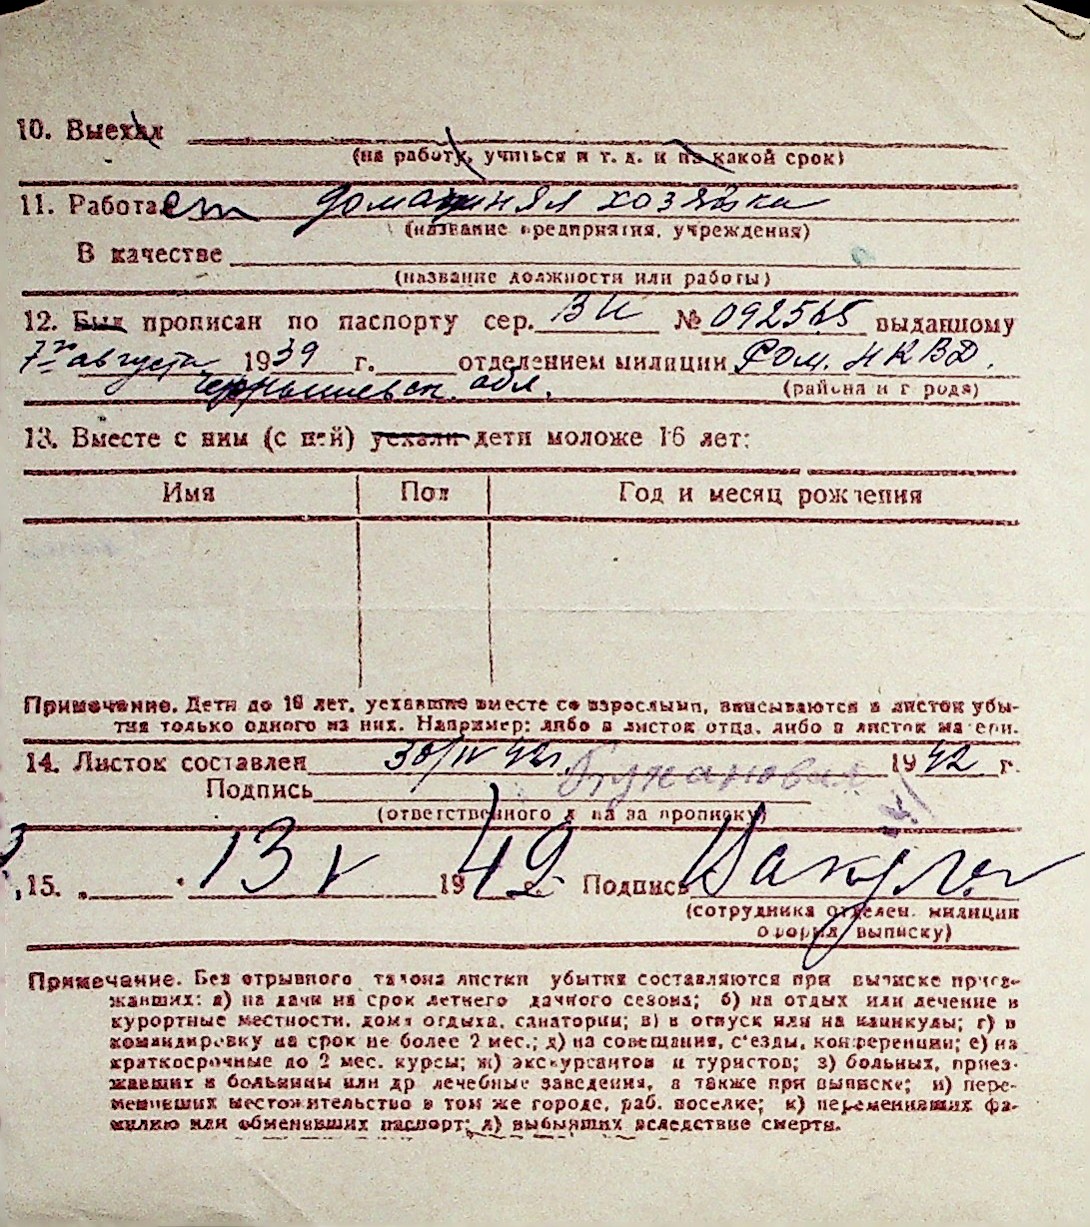 10. Выехал
(на работу, учиться и т. д. и на какой срок)
11. Работает домашняя хозяйка
(название предприятия, учреждения)
В качестве
(название должности или работы)
12. Был прописан по паспорту сер. ВИ № 092565 выданному
7го августа 1939 г. отделением милиции Ром. НКВД.
обл. (района и города)
13. Вместе с ним (с ней) уехали дети моложе 16 лет:
Имя Пол Год и месяц рождения
Примечание. Дети до 16 лет, уехавшие вместе со взрослыми, вписываются в листок убы-
тия только одного из них. Например: либо в листок отца, либо в листок матери.
14. Листок составлен 30/IV 42г. 1942 г.
Подпись
(ответственного лица за прописку)
15. „ " 13 V 1942 г. Подпись
(сотрудника отделен. милиции
оформ. выписку)
Примечание. Без отрывного талона листки убытия составляются при выписке приез-
жавших: а) на дачи на срок летнего дачного сезона; б) на отдых или лечение в
курортные местности, дома отдыха, санатории; в) в отпуск или на каникулы; г) в
командировку на срок не более 2 мес.; д) на совещания, с'езды, конференции; е) на
краткосрочные до 2 мес. курсы; ж) экскурсантов и туристов; з) больных, приез-
жавших в больницы или др лечебные заведения, а также при выписке; и) пере-
менивших местожительство в том же городе, раб. поселке; к) переменивших фа-
милию или обменявших паспорт; л) выбывших вследствие смерти.